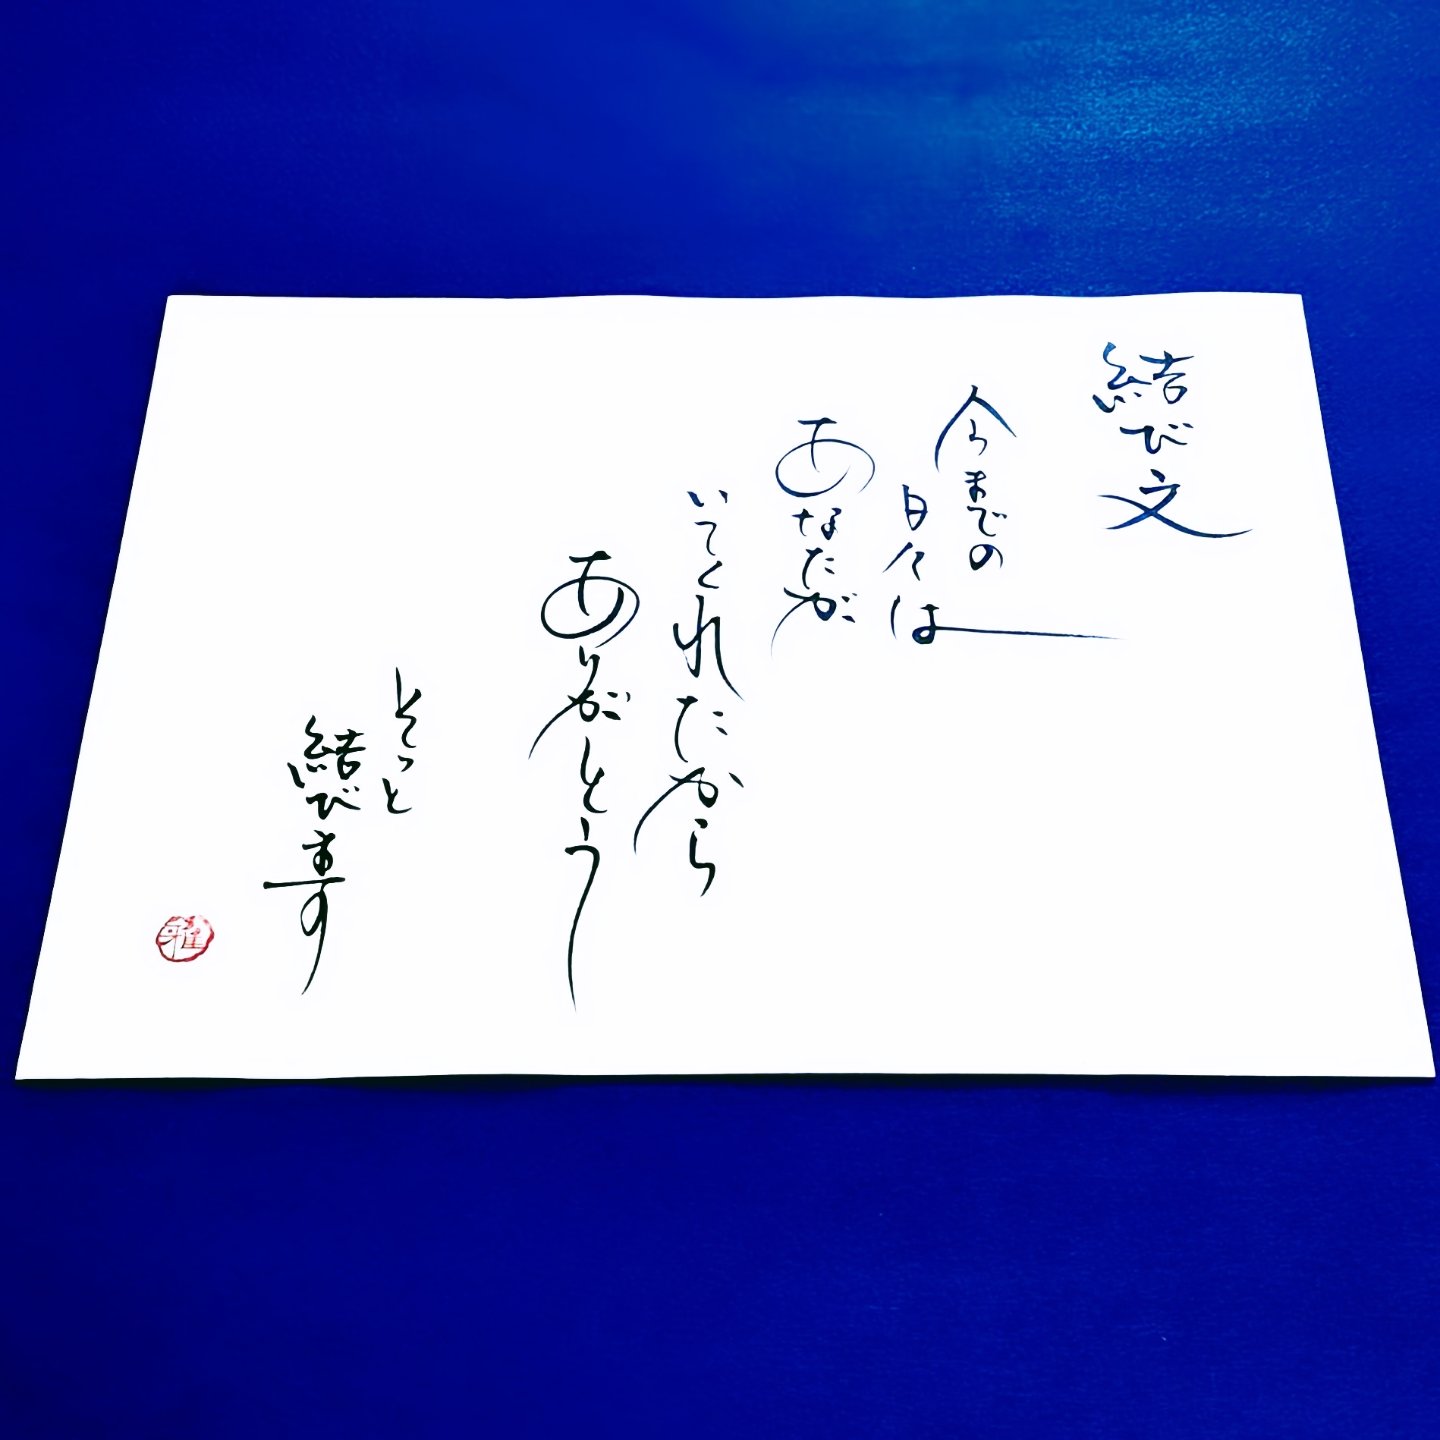 結び文
今までの
日々は
あなたが
いてくれたから
ありがとう
そっと
結びます
雅